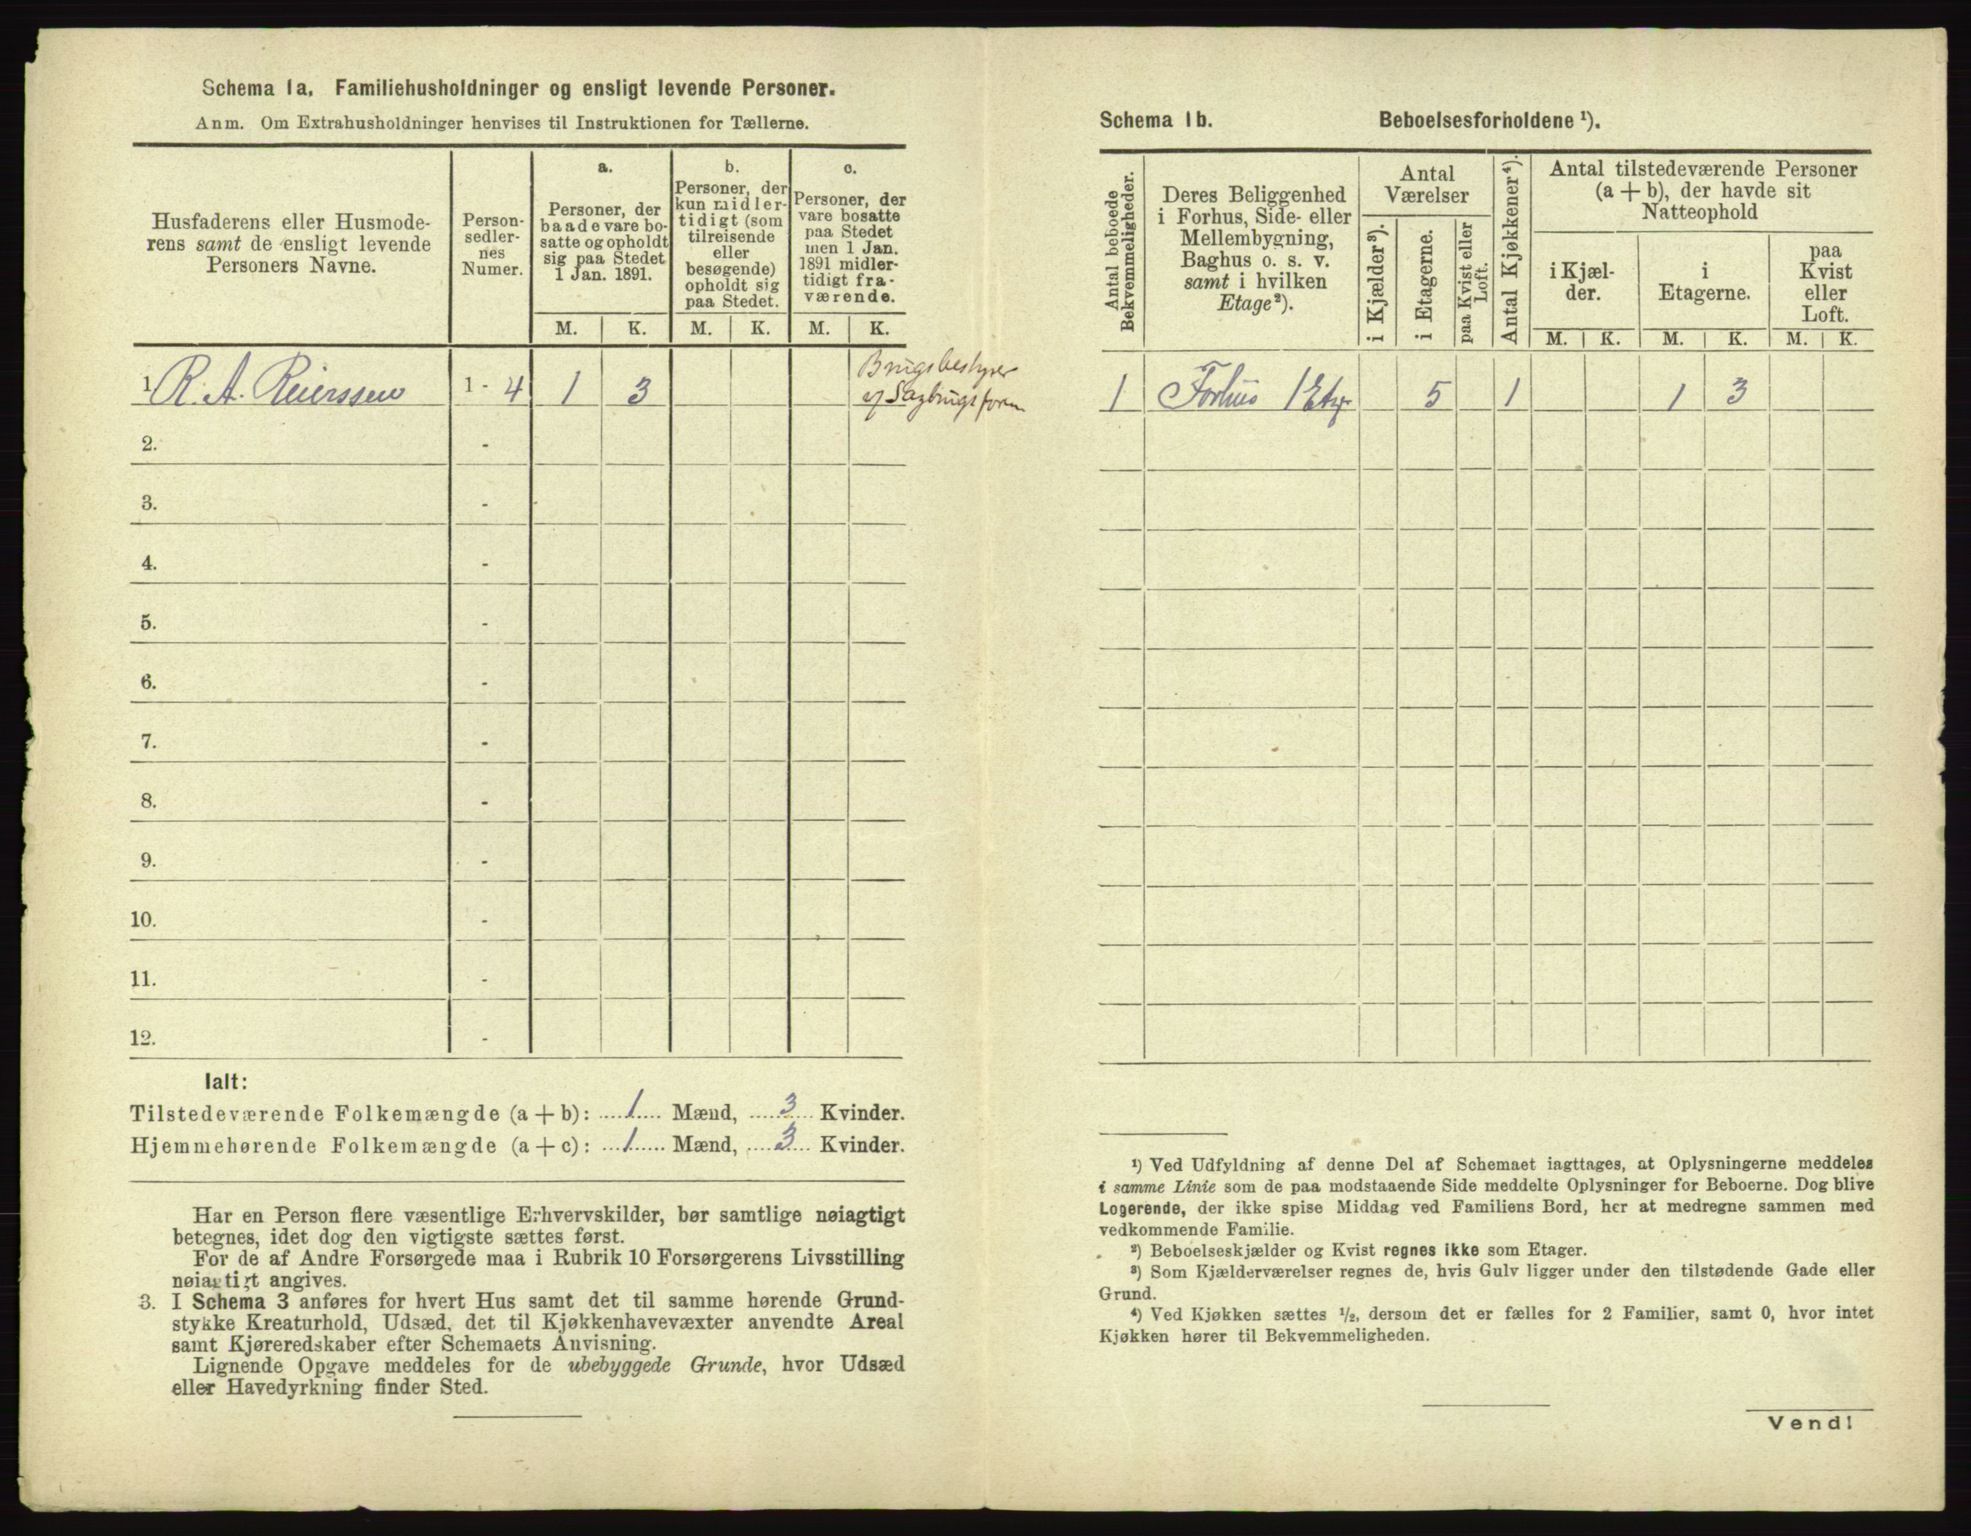 Schema 1a. Familiehusholdninger og ensligt levende Personer.
Anm. Om Extrahusholdninger henvises til Instruktionen for Tællerne.
Husfaderens eller Husmode-
rens samt de ensligt levende
Personers Navne.
Person-
sedler-
nes
Numer.
a.
Personer, der
baade vare bo-
satte og opholdt
sig paa Stedet
1 Jan. 1891.
b.
Personer, der
kun midler-
tidigt (som
tilreisende
eller
besøgende)
opholdt sig
paa Stedet.
c.
Personer, der
vare bosatte
paa Stedet
men 1 Jan.
1891 midler-
tidigt fra-
værende.
M. K. M. K. M. K.
1 R. A. Reierssen 1 - 4 1 3
Brugsbestyrer
2. -
3. -
4. -
5. -
6. -
7. -
8. -
9. -
10. -
11. -
12. -
Ialt:
Tilstedeværende Folkemængde (a + b): 1 Mænd, 3 Kvinder.
Hjemmehørende Folkemængde (a + c): 1 Mænd, 3 Kvinder.
Har en Person flere væsentlige Erhvervskilder, bør samtlige nøiagtigt
betegnes, idet dog den vigtigste sættes først.
For de af Andre Forsørgede maa i Rubrik 10 Forsørgerens Livsstilling
nøiagtigt angives.
3. I Schema 3 anføres for hvert Hus samt det til samme hørende Grund-
stykke Kreaturhold, Udsæd, det til Kjøkkenhavevæxter anvendte Areal
samt Kjøreredskaber efter Schemaets Anvisning.
Lignende Opgave meddeles for de ubebyggede Grunde, hvor Udsæd
eller Havedyrkning finder Sted.
Schema 1b. Beboelsesforholdene ¹).
Antal beboede
Bekvemmeligheder.
Deres Beliggenhed
i Forhus, Side- eller
Mellembygning,
Baghus o. s. v.
samt i hvilken
Etage²).
Antal
Værelser
i Kjælder³).
i Etagerne.
paa Kvist eller
Loft.
Antal Kjøkkener⁴).
Antal tilstedeværende Personer
(a + b), der havde sit
Natteophold
i Kjæl-
der.
i
Etagerne.
paa
Kvist
eller
Loft.
M. K. M. K. M. K.
1 Forhus 1 Etg. 5 1 1 3
¹) Ved Udfyldning af denne Del af Schemaet iagttages, at Oplysningerne meddeles
i samme Linie som de paa modstaaende Side meddelte Oplysninger for Beboerne. Dog blive
Logerende, der ikke spise Middag ved Familiens Bord, her at medregne sammen med
vedkommende Familie.
²) Beboelseskjælder og Kvist regnes ikke som Etager.
³) Som Kjælderværelser regnes de, hvis Gulv ligger under den tilstødende Gade eller
Grund.
⁴) Ved Kjøkken sættes ½, dersom det er fælles for 2 Familier, samt 0, hvor intet
Kjøkken hører til Bekvemmeligheden.
Vend!